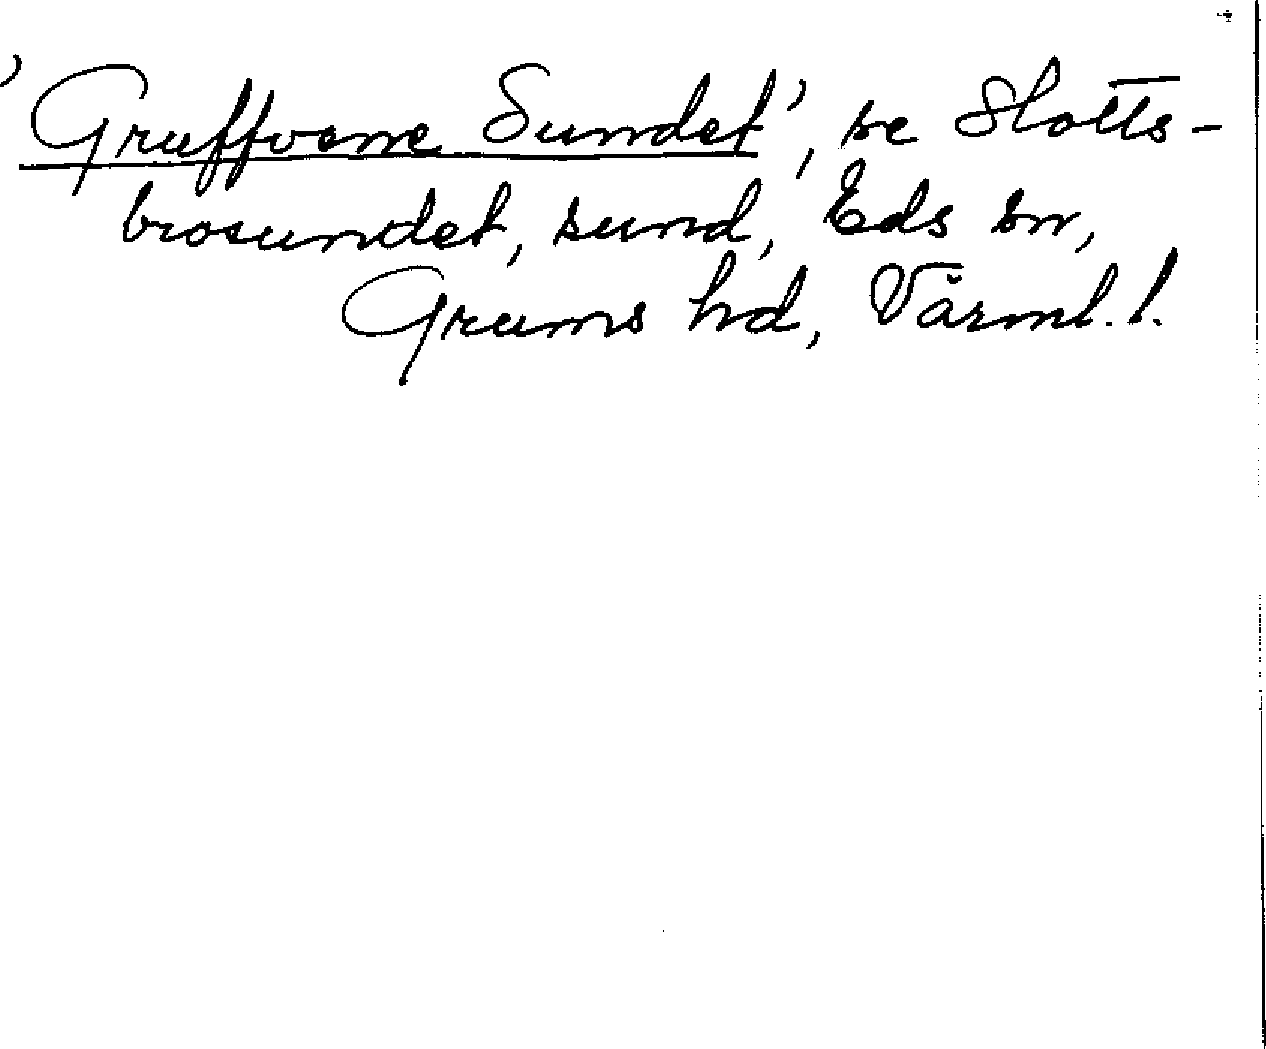 'Gruffvone Sundet', se Slotts-
brosundet, sund, Eds sn,
Grums hd, Värml. l.